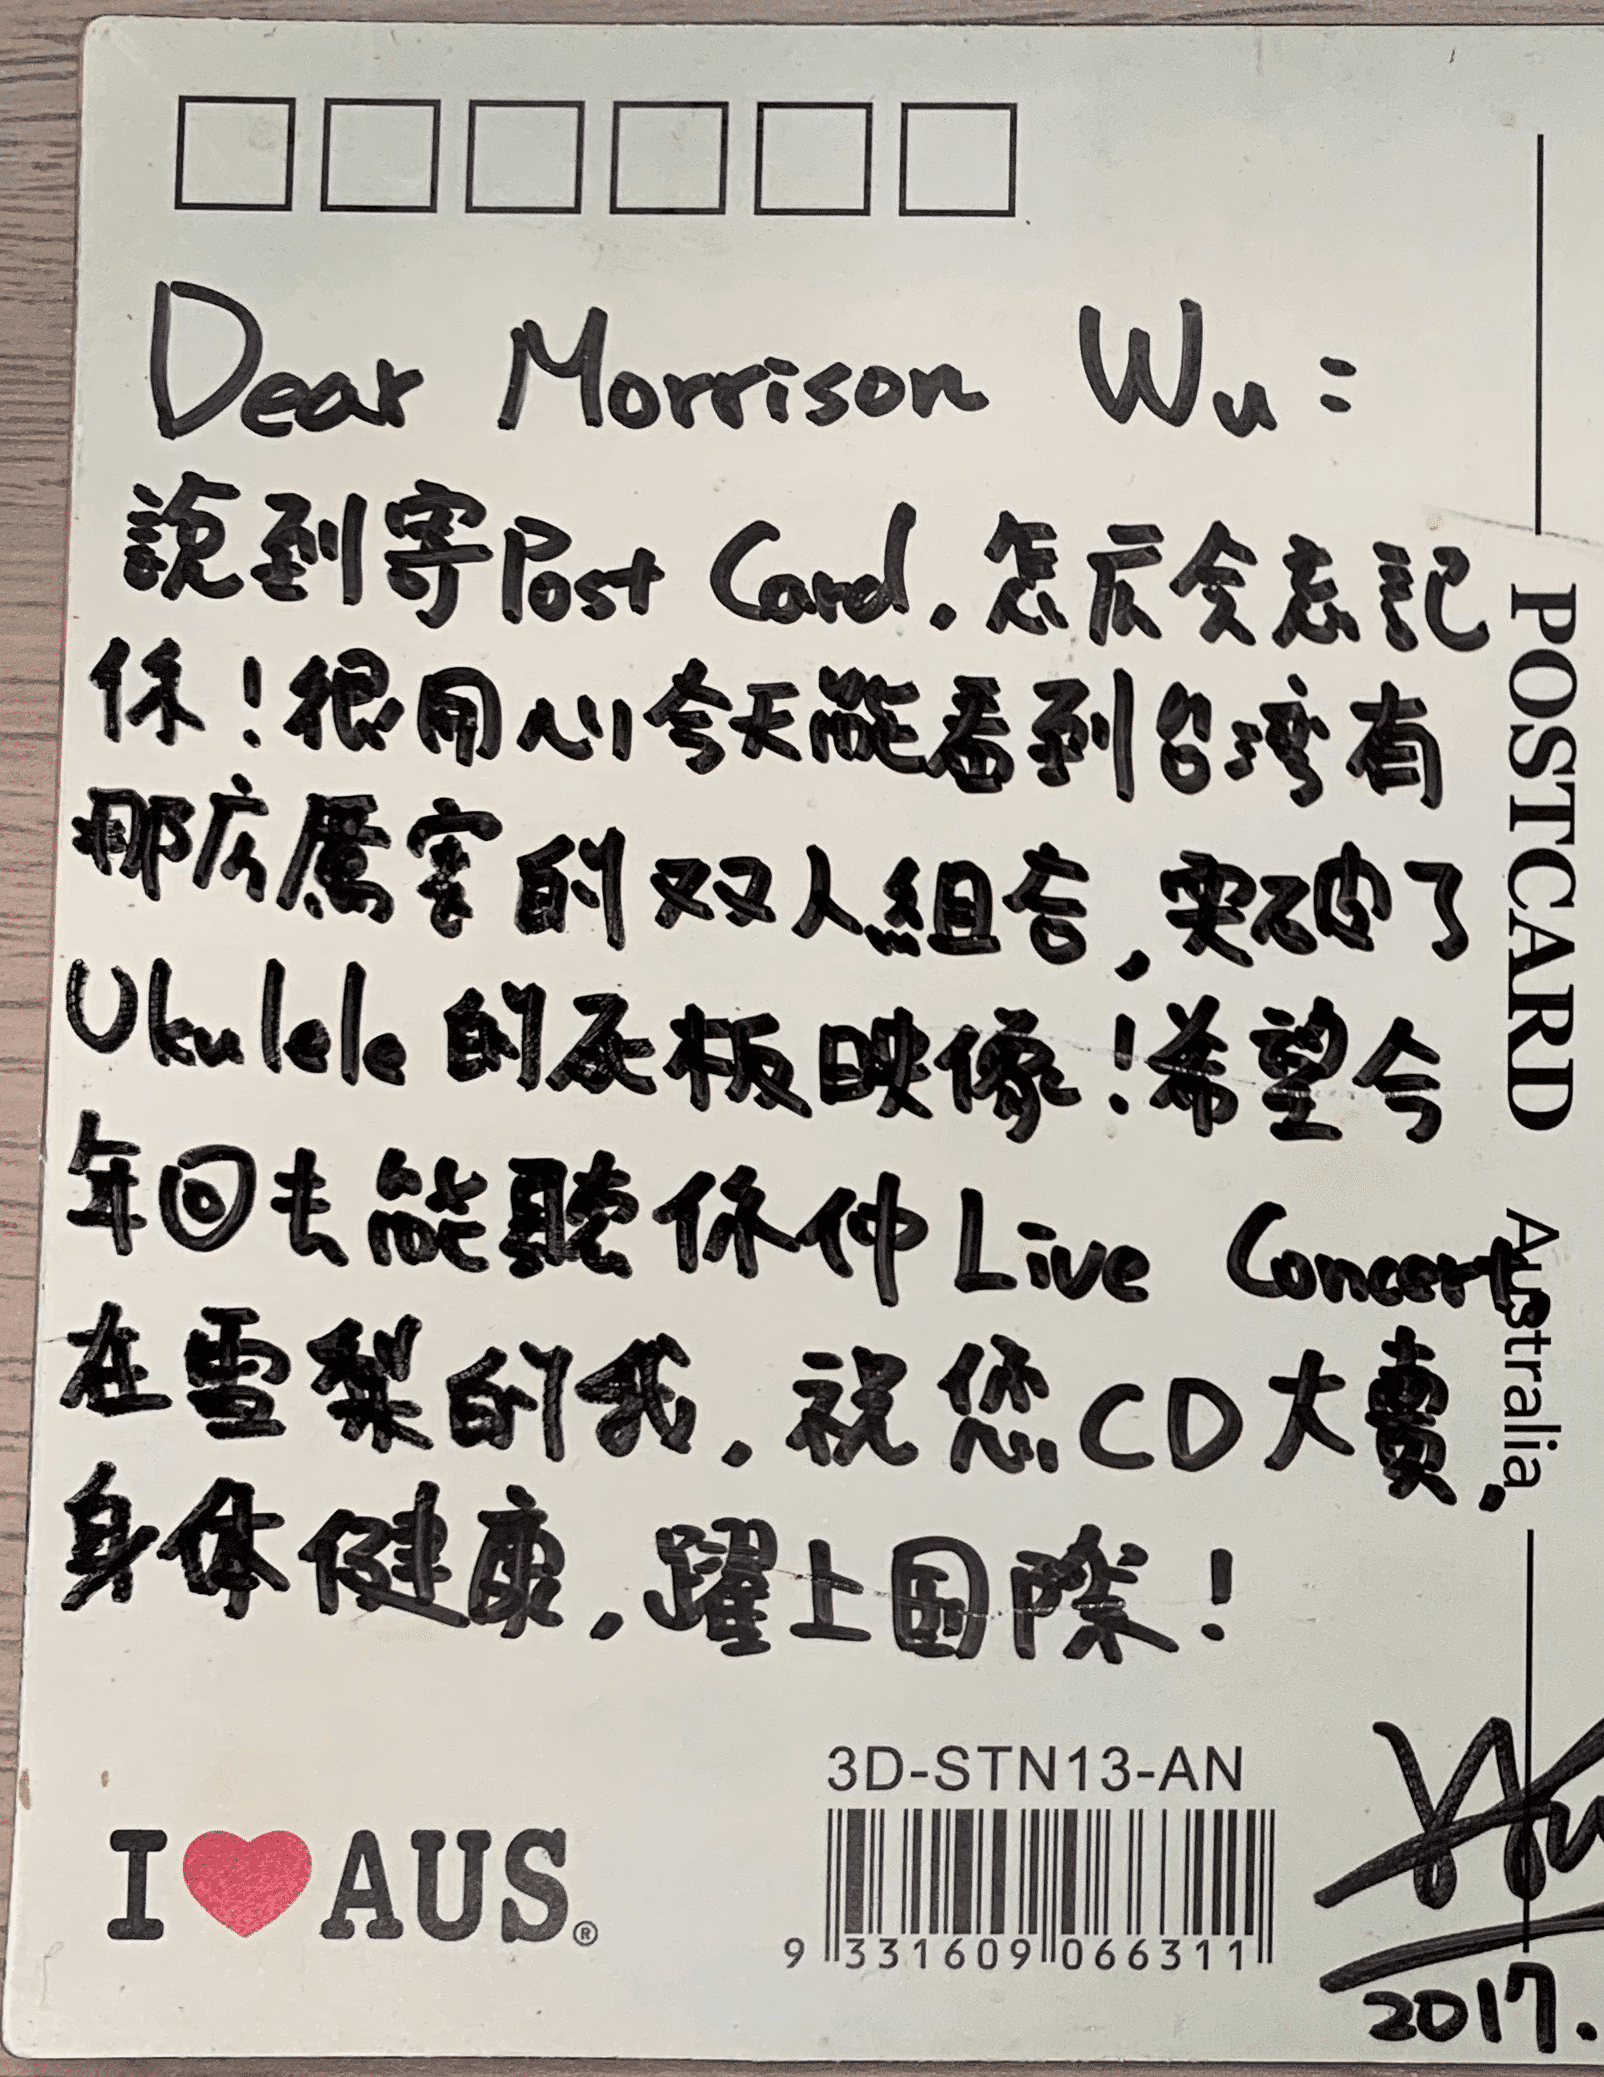 Dear Morrison Wu:
說到寄Post Card,怎広会忘記
你!很用心今天能看到台湾有
那広厲害的双人組合,突破了
Ukulele的灰板映像!希望今
年回去能聽你们Live Concert,
在雪梨的我,祝您CD大賣,
身体健康,躍上国際!
POSTCARD Australia
3D-STN13-AN
I AUS®
9 331609 066311
2017.